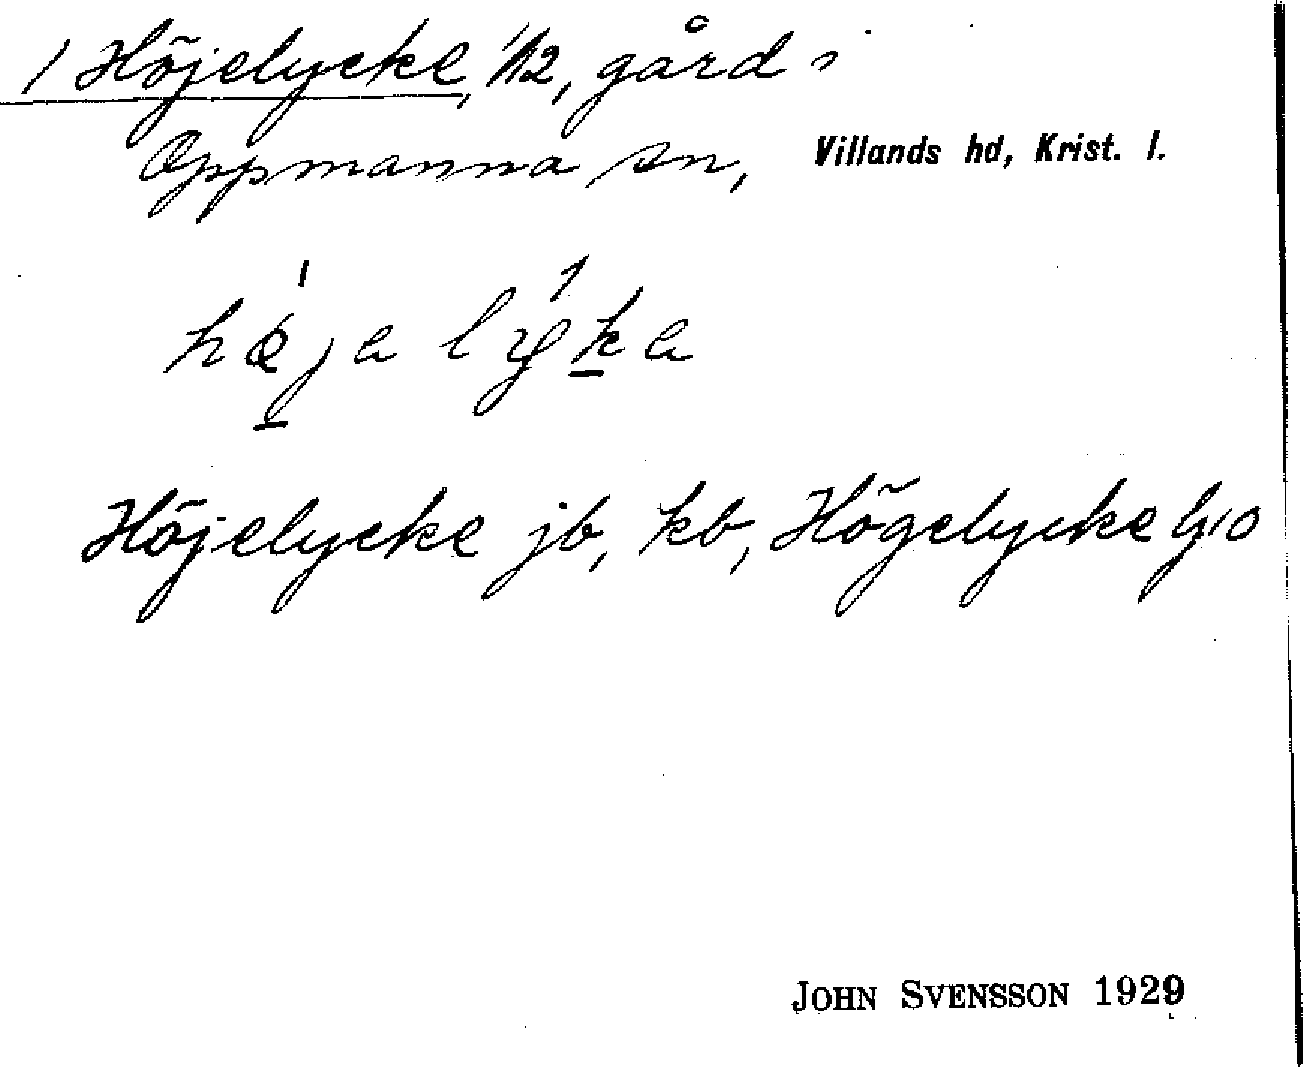 1 Höjelycke, 1/12, gård i
Oppmanna sn, Villands hd, Krist. l.
Höjelycke jb, kb, Högelycke
JOHN SVENSSON 1929